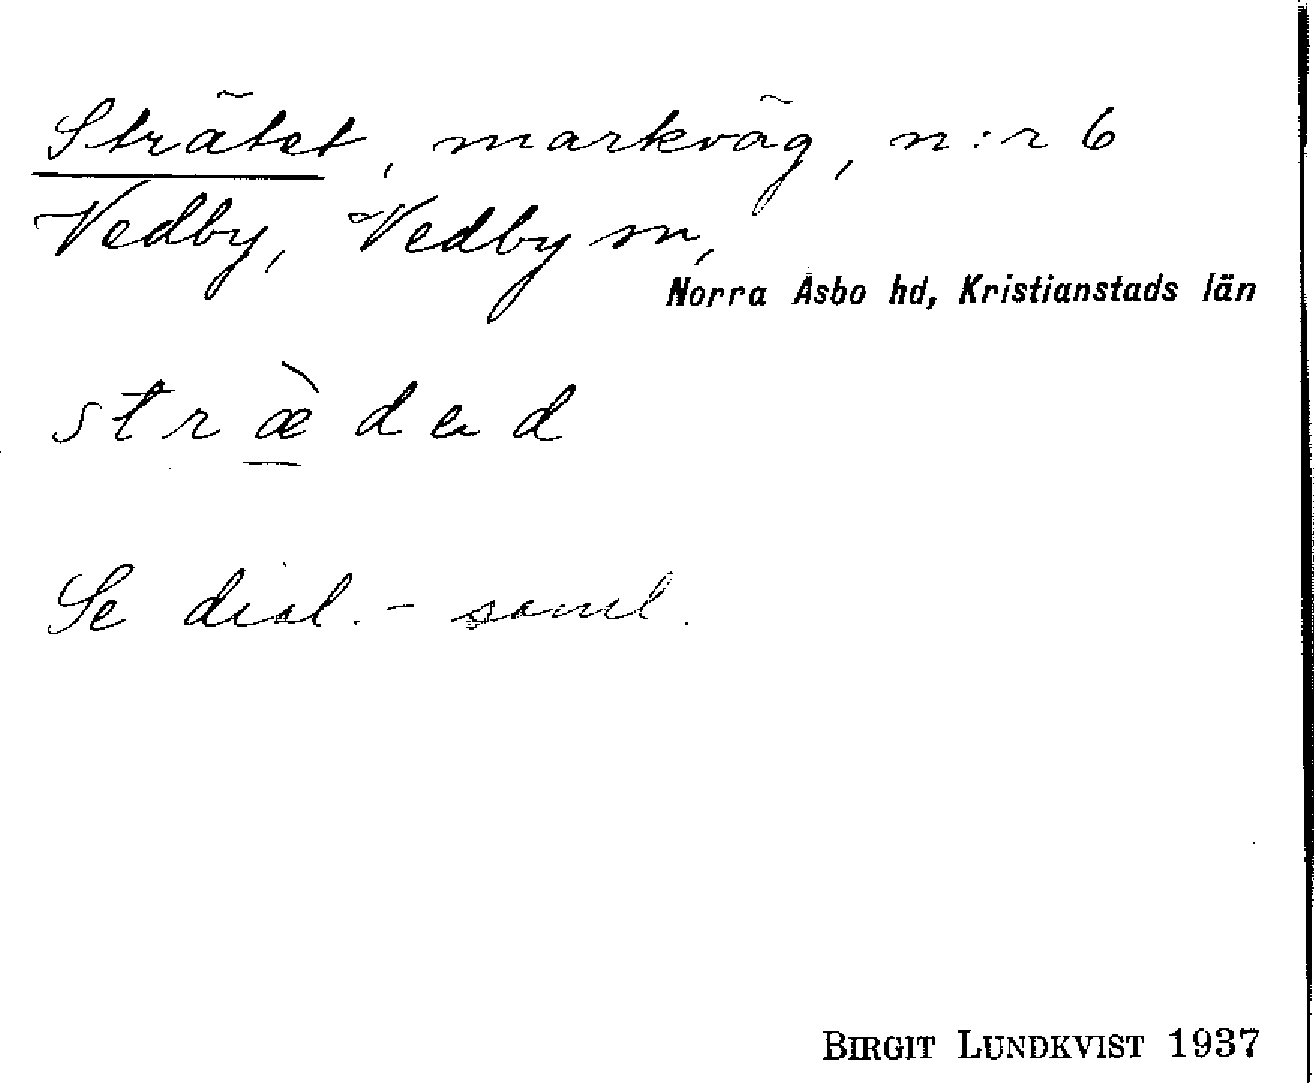 Strätet, markväg, n:r 6
Vedby, Vedby sn,
Norra Åsbo hd, Kristianstads län
stræ̀dəd
Se dial.-saml.
BIRGIT LUNDKVIST 1937